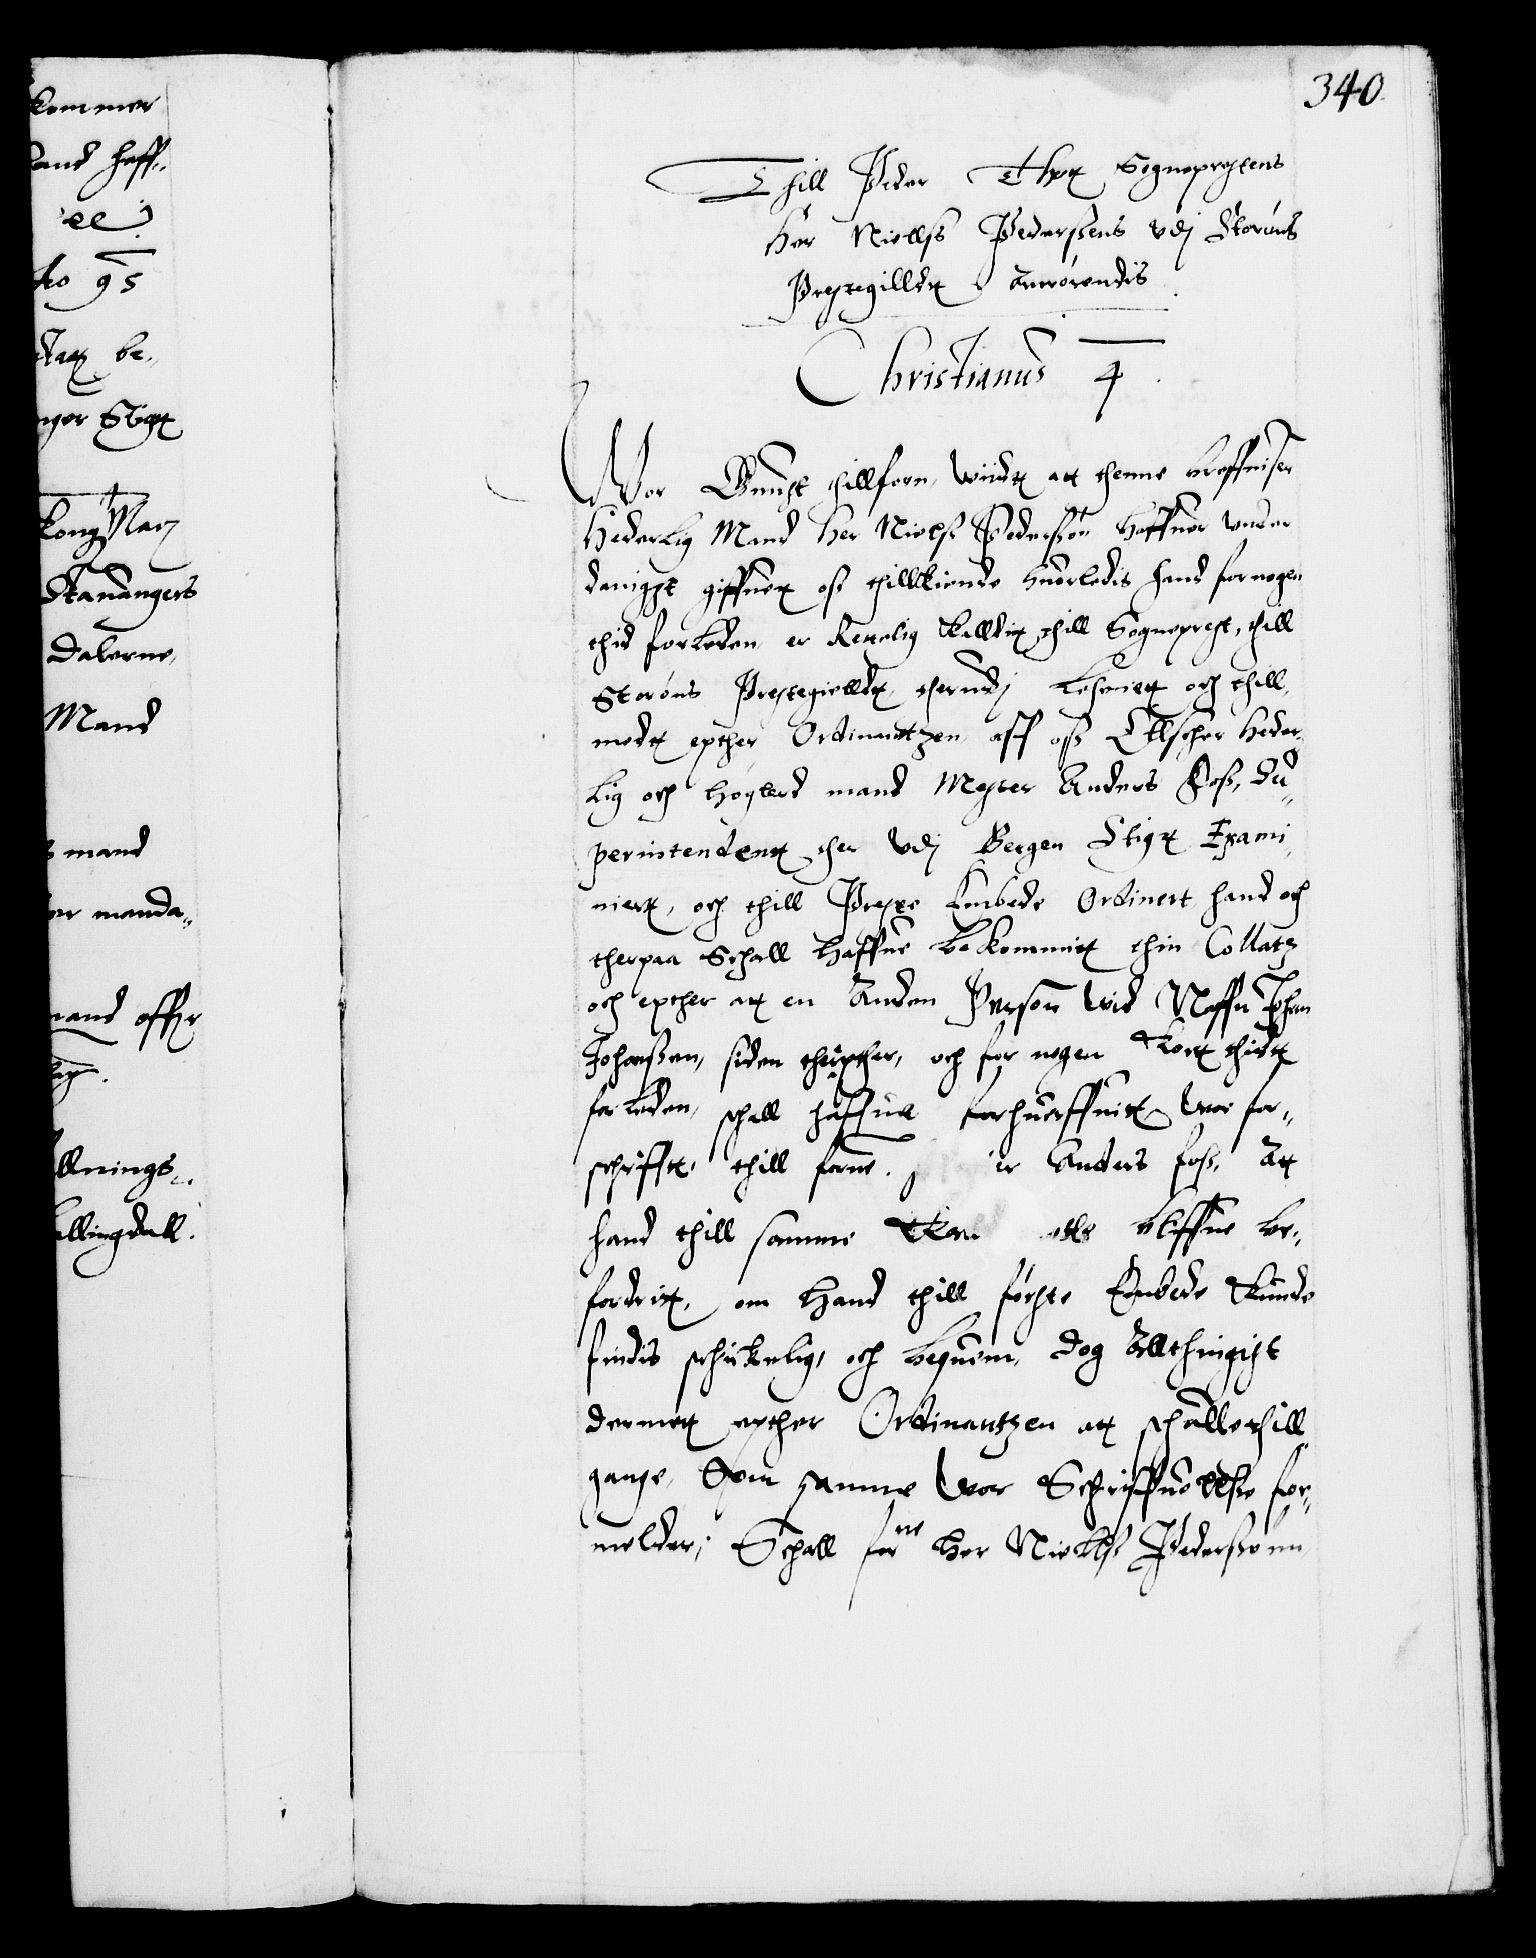 kommer
haff„
ee
ho 95
be„
nger Stigt
kong Maij
Stauangers
Dalerne,
Mand
mand
manda„
mand
llnings„
allingdall.
340
Thill Peder Thot Sogneprestens
Her Niellss Pederssens vdj Storøns
Prestegilldt anrørendis
Christianus 4
Wor Gunst thillforn, wiidt at thenne breffuiser
Hederlig Mand Her Nielss Pederssøn haffuer vnder
danigst giffuet oss thillkiende huorledis hand for nogen
thid forleden er Rettelig kalldit thill Sogneprest, thill
Storøns Prestegielldt, therudj beseriet och thill„
medt epther Ordinantzen aff oss Ellscher Heder„
lig och høglerd mand Mester Anders Foss, Su„
perintendent ther vdj Bergen Stigt Exami„
niert, och thill Preste Embede Ordinert hand och
therpaa Schall haffue bekommit thin Collatz
och epther at en Anden Person wid Naffn
Johanssen, siden therepther, och for nogen kort thidt
forleden, schall haffue forhuerffuit wor for„
schrifft thill forne. er Anders foss, At
hand thill samme bliffue be„
fordrit, om hand thill sørste Embede kunde
findis schickelig, och bequem, dog Allthingist
dermet epther Ordinantzen at schulle thill
gange, Som samme wor Schriffuellsse for„
melder; Schall forne her Niellss Pederssønn